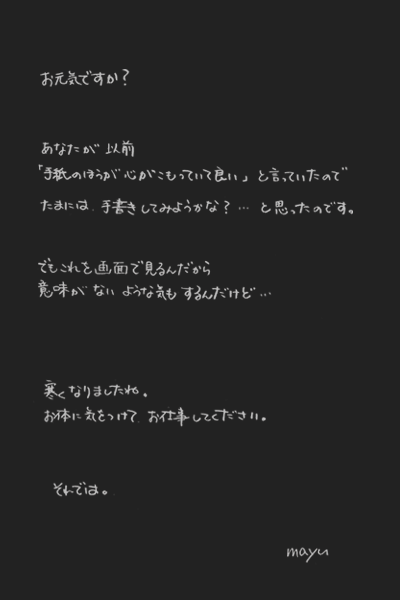 お元気ですか？
あなたが以前
「手紙のほうが心がこもっていて良い」と言っていたので
たまには、手書きしてみようかな？…と思ったのです。
でもこれを画面で見るんだから
意味がないような気もするんだけど…
寒くなりましたね。
お体に気をつけて、お仕事してください。
それでは。
mayu